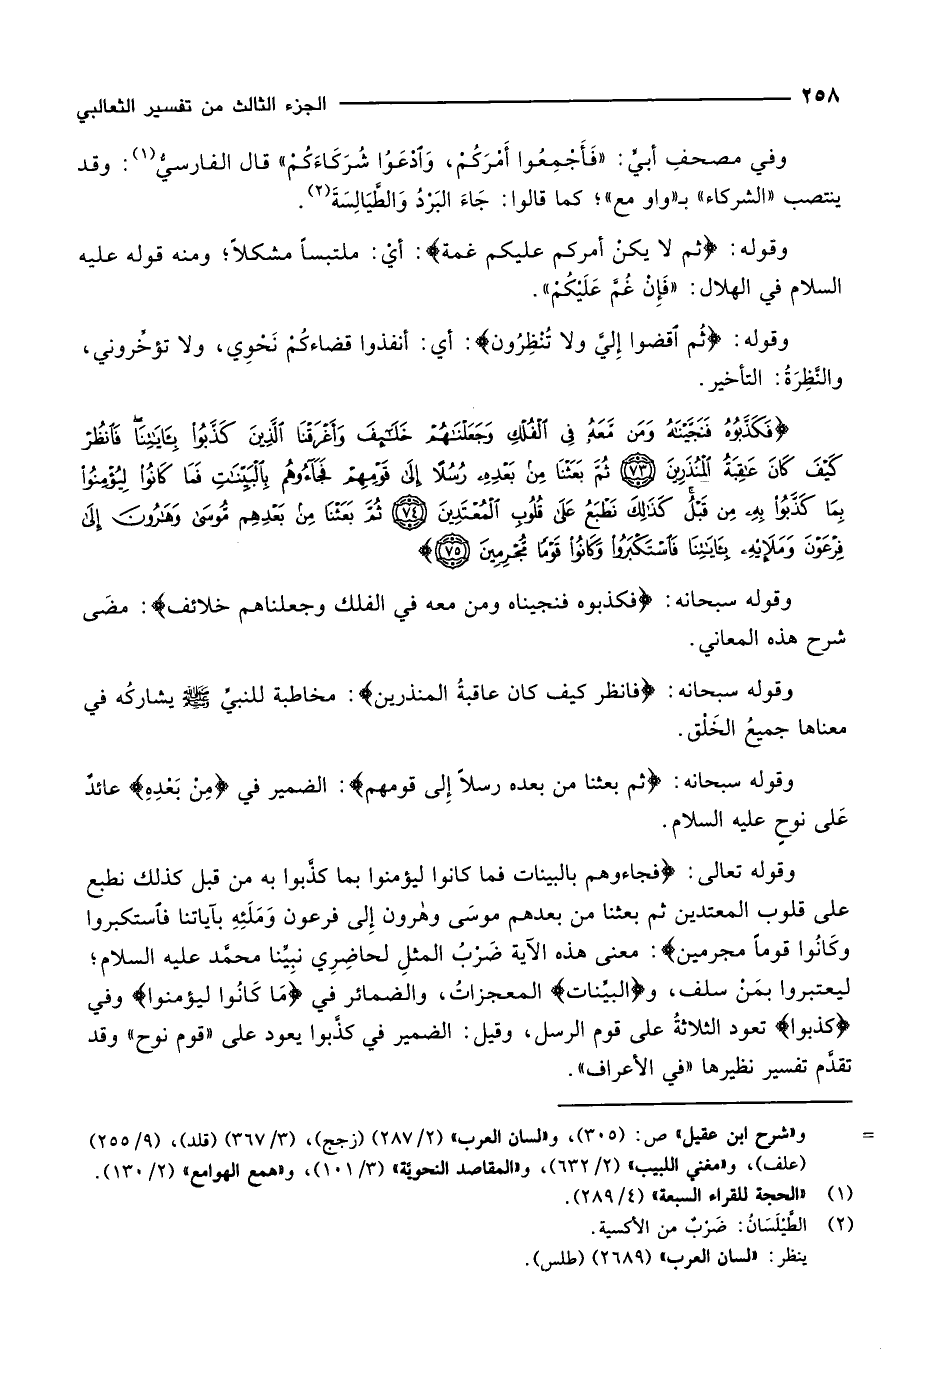 ٢٥٨ الجزء الثالث من تفسير الثعالبي
وفي مصحفِ أبيٍّ: «فَأَجْمِعُوا أَمْرَكُم، وَٱدْعَوُا شُرَكَاءَكُمْ» قال الفارسيُّ(١): وقد
ينتصب «الشركاء» بـ«واو مع»؛ كما قالوا: جَاءَ البَرْدُ وَالطَّيَالِسَةَ(٢).
وقوله: ﴿ثم لا يكنْ أمركم عليكم غمة﴾: أيْ: ملتبساً مشكلاً؛ ومنه قوله عليه
السلام في الهلال: «فَإِنْ غُمَّ عَلَيْكُمْ».
وقوله: ﴿ثُم ٱقضوا إِليَّ ولا تُنْظِرُون﴾: أي: أنفذوا قضاءكُمْ نَحْوِي، ولا تؤخِّروني،
والنَّظِرَةُ: التأخير.
﴿فَكَذَّبُوهُ فَنَجَّيْنَاهُ وَمَن مَّعَهُ فِي الْفُلْكِ وَجَعَلْنَاهُمْ خَلَائِفَ وَأَغْرَقْنَا الَّذِينَ كَذَّبُوا بِـَٔايَاتِنَا ۖ فَانظُرْ
كَيْفَ كَانَ عَاقِبَةُ الْمُنذَرِينَ ﴿٧٣﴾ ثُمَّ بَعَثْنَا مِنْ بَعْدِهِ رُسُلًا إِلَى قَوْمِهِمْ فَجَاءُوهُم بِالْبَيِّنَاتِ فَمَا كَانُوا لِيُؤْمِنُوا
بِمَا كَذَّبُوا بِهِ مِن قَبْلُ ۚ كَذَلِكَ نَطْبَعُ عَلَى قُلُوبِ الْمُعْتَدِينَ ﴿٧٤﴾ ثُمَّ بَعَثْنَا مِنْ بَعْدِهِم مُّوسَى وَهَارُونَ إِلَى
فِرْعَوْنَ وَمَلَإِيْهِ بِـَٔايَاتِنَا فَاسْتَكْبَرُوا وَكَانُوا قَوْمًا مُّجْرِمِينَ ﴿٧٥﴾﴾
وقوله سبحانه: ﴿فكذبوه فنجيناه ومن معه في الفلك وجعلناهم خلائف﴾: مضَى
شرح هذه المعاني.
وقوله سبحانه: ﴿فانظر كيف كان عاقبةُ المنذرين﴾: مخاطبة للنبيِّ ﷺ يشاركُه في
معناها جميعُ الخَلْق.
وقوله سبحانه: ﴿ثم بعثنا من بعده رسلاً إِلى قومهم﴾: الضمير في ﴿مِنْ بَعْدِهِ﴾ عائدٌ
عَلى نوحٍ عليه السلام.
وقوله تعالى: ﴿فجاءوهم بالبينات فما كانوا ليؤمنوا بما كذَّبوا به من قبل كذلك نطبع
على قلوب المعتدين ثم بعثنا من بعدهم موسَى وهٰرون إلى فرعون وَمَلَئِهِ بآياتنا فٱستكبروا
وكَانُوا قوماً مجرمين﴾: معنى هذه الآية ضَرْبُ المثلِ لحاضِرِي نبيِّنا محمَّد عليه السلام؛
ليعتبروا بمَنْ سلف، و﴿البيِّنات﴾ المعجزاتُ، والضمائر في ﴿مَا كَانُوا ليؤمنوا﴾ وفي
﴿كذبوا﴾ تعود الثلاثةُ على قوم الرسل، وقيل: الضمير في كذَّبوا يعود على «قوم نوح» وقد
تقدَّم تفسير نظيرها «في الأعراف».
= و«شرح ابن عقيل» ص: (٣٠٥)، و«لسان العرب» (٢/ ٢٨٧) (زجج)، (٣/ ٣٦٧) (قلد)، (٩/ ٢٥٥)
(علف)، و«مغني اللبيب» (٢/ ٦٣٢)، و«المقاصد النحويّة» (٣/ ١٠١)، و«همع الهوامع» (٢/ ١٣٠).
(١) «الحجة للقراء السبعة» (٤/ ٢٨٩).
(٢) الطَّيْلَسَانُ: ضَرْبٌ من الأكسية.
ينظر: «لسان العرب» (٢٦٨٩) (طلس).